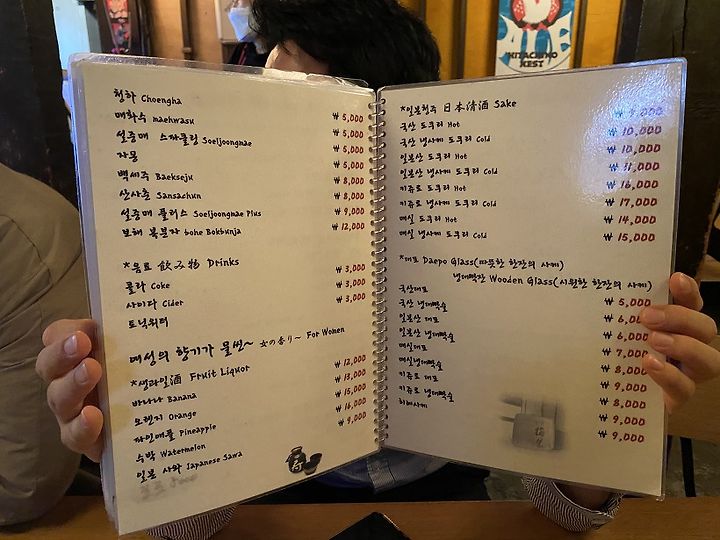 청하 Choengha ₩ 5,000
매화수 maehwasu ₩ 5,000
설중매 스파클링 Soeljoongmae ₩ 5,000
자몽 ₩ 5,000
백세주 Baekseju ₩ 8,000
산사춘 Sansachun ₩ 8,000
설중매 플러스 Soeljoongmae Plus ₩ 9,000
보해 복분자 bohe Bokbunja ₩ 12,000
*음료 飲み物 Drinks
콜라 Coke ₩ 3,000
사이다 Cider ₩ 3,000
토닉워터 ₩ 3,000
여성의 향기가 물씬~ 女の香り~ For Women
*생과일酒 Fruit Liquor
바나나 Banana ₩ 12,000
오렌지 Orange ₩ 13,000
파인애플 Pineapple ₩ 15,000
수박 Watermelon ₩ 16,000
일본 사와 Japanese Sawa ₩ 9,000
*일본청주 日本清酒 Sake
국산 도쿠리 Hot ₩ 9,000
국산 냉사케 도쿠리 Cold ₩ 10,000
일본산 도쿠리 Hot ₩ 10,000
일본산 냉사케 도쿠리 Cold ₩ 11,000
키쥬로 도쿠리 Hot ₩ 16,000
키쥬로 냉사케 도쿠리 Cold ₩ 17,000
매실 도쿠리 Hot ₩ 14,000
매실 냉사케 도쿠리 Cold ₩ 15,000
*대포 Daepo Glass(따뜻한 한잔의 사케)
냉대빡잔 Wooden Glass(시원한 한잔의 사케)
국산대포 ₩ 5,000
국산 냉대빡술 ₩ 6,000
일본산 대포 ₩ 6,000
일본산 냉대빡술 ₩ 7,000
매실대포 ₩ 8,000
매실냉대빡술 ₩ 9,000
키쥬로 대포 ₩ 8,000
키쥬로 냉대빡술 ₩ 9,000
히레사케 ₩ 9,000
ALE
HITACHINO
NEST